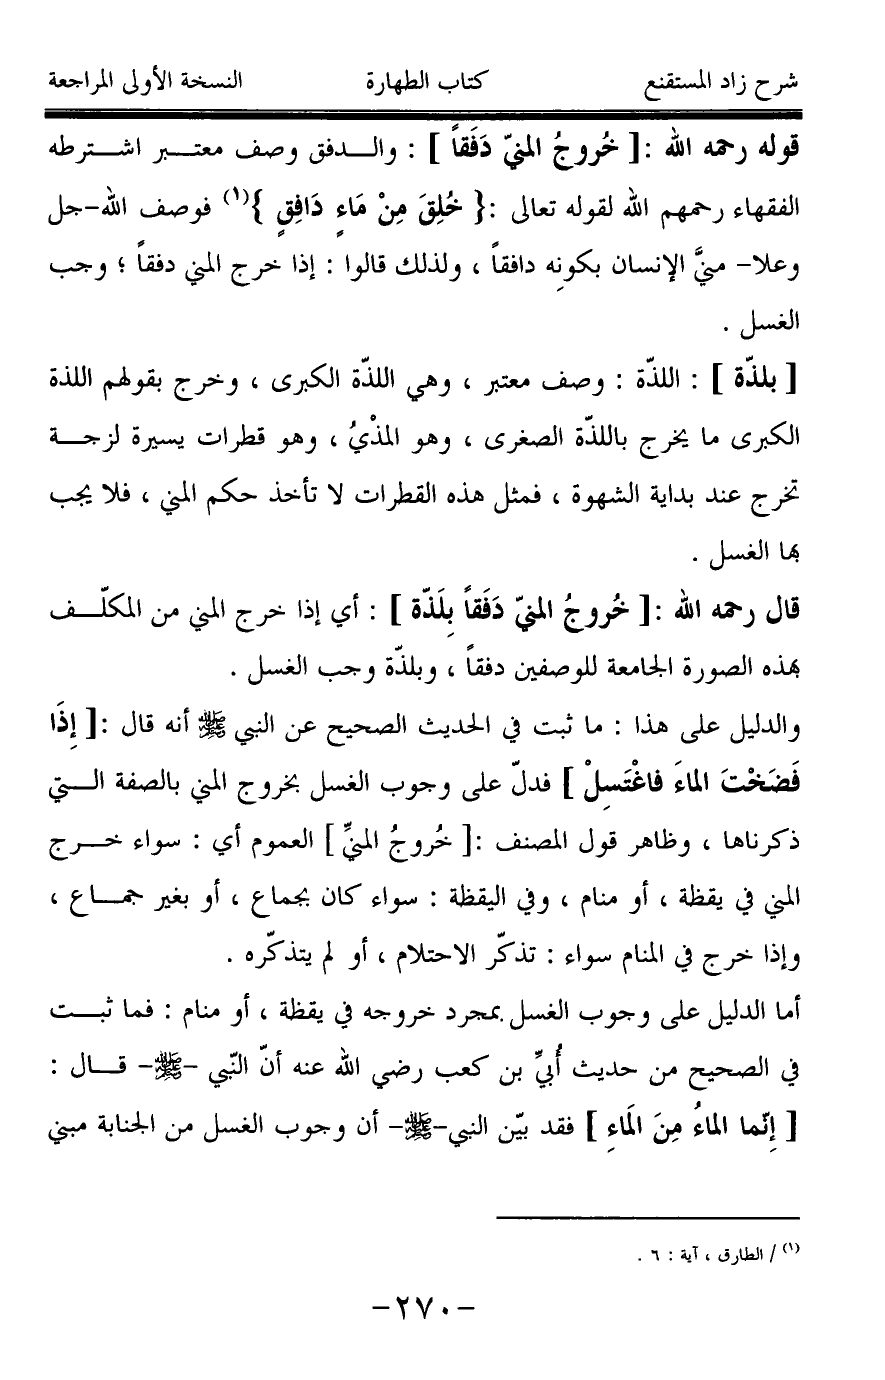 شرح زاد المستقنع كتاب الطهارة النسخة الأولى المراجعة
قوله رحمه الله :[ خُروجُ المنيّ دَفَقاً ] : والــدفق وصف معتـبر اشـترطه
الفقهاء رحمهم الله لقوله تعالى :{ خُلِقَ مِنْ مَاءٍ دَافِقٍ }(١) فوصف الله-جل
وعلا- منيَّ الإنسان بكونِه دافقاً ، ولذلك قالوا : إذا خرج المني دفقاً ؛ وجب
الغسل .
[ بلذّة ] : اللذّة : وصف معتبر ، وهي اللذّة الكبرى ، وخرج بقولهم اللذة
الكبرى ما يخرج باللذّة الصغرى ، وهو المذْيُ ، وهو قطرات يسيرة لزجــة
تخرج عند بداية الشهوة ، فمثل هذه القطرات لا تأخذ حكم المني ، فلا يجب
بها الغسل .
قال رحمه الله :[ خُروجُ المنيّ دَفَقاً بِلَذّة ] : أي إذا خرج المني من المكلّــف
بهذه الصورة الجامعة للوصفين دفقاً ، وبلذّة وجب الغسل .
والدليل على هذا : ما ثبت في الحديث الصحيح عن النبي ﷺ أنه قال :[ إِذَا
فَضَخْتَ الماءَ فاغْتَسِلْ ] فدلّ على وجوب الغسل بخروج المني بالصفة الــتي
ذكرناها ، وظاهر قول المصنف :[ خُروجُ المنيِّ ] العموم أي : سواء خــرج
المني في يقظة ، أو منام ، وفي اليقظة : سواء كان بجماع ، أو بغير جمــاع ،
وإذا خرج في المنام سواء : تذكّر الاحتلام ، أو لم يتذكّره .
أما الدليل على وجوب الغسل بمجرد خروجه في يقظة ، أو منام : فما ثبــت
في الصحيح من حديث أُبيِّ بن كعب رضي الله عنه أنّ النّبي -ﷺ- قــال :
[ إِنّما الماءُ مِنَ الَماءِ ] فقد بيّن النبي-ﷺ- أن وجوب الغسل من الجنابة مبني
(١) / الطارق ، آية : ٦ .
-٢٧٠-